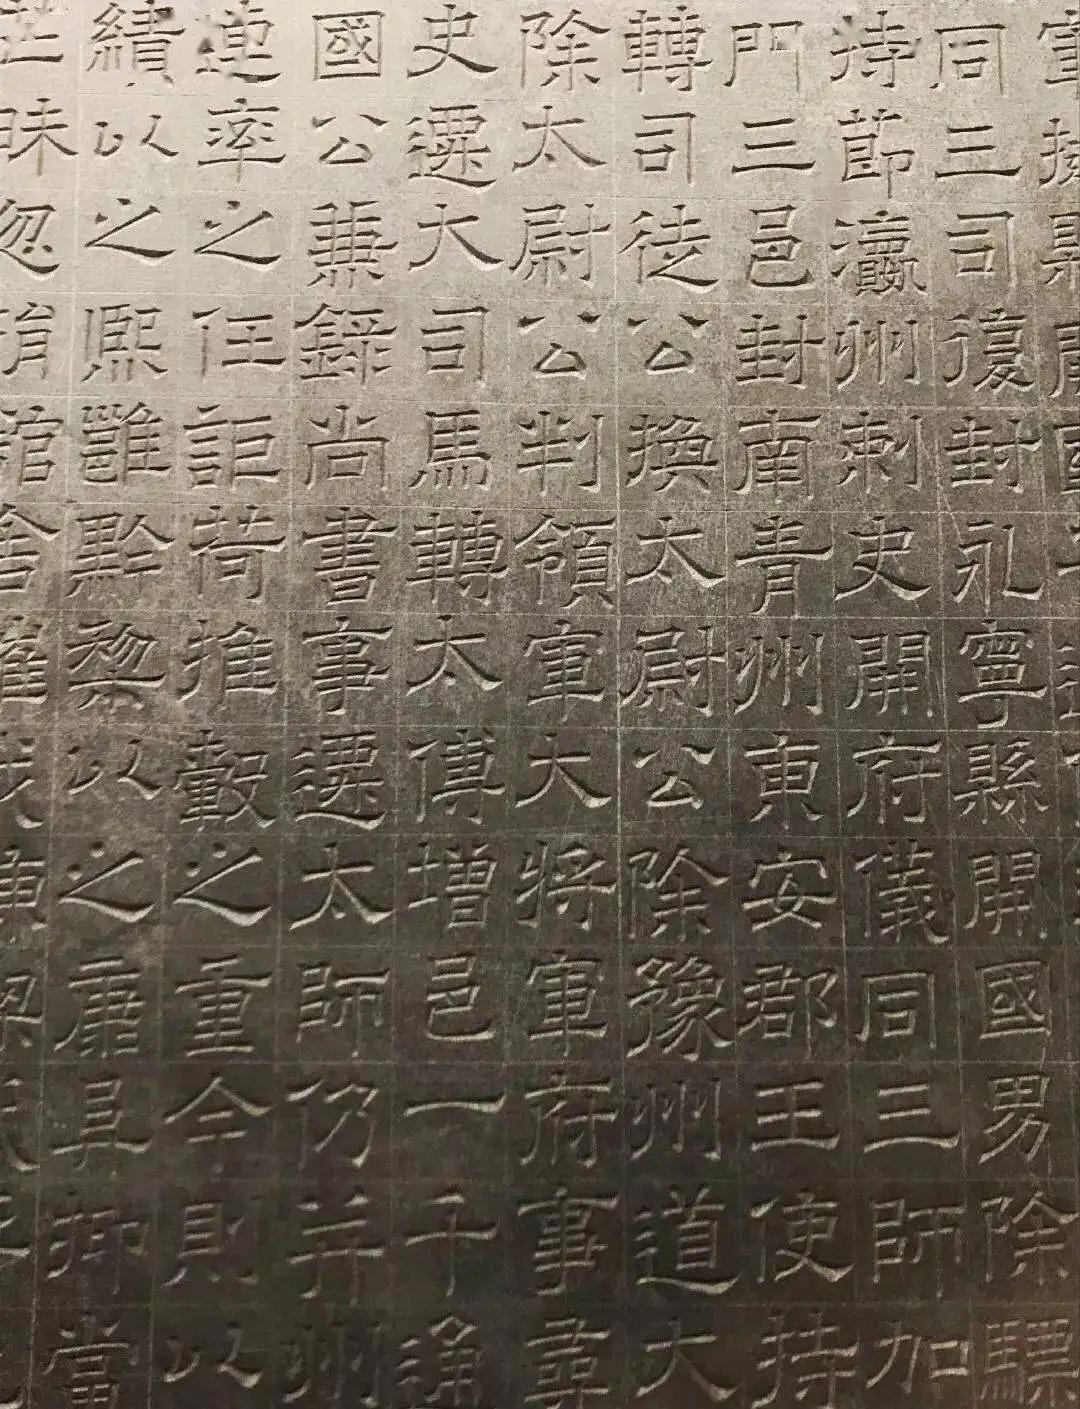 同三司復封永寧縣開國男除驃
持節瀛州刺史開府儀同三師加
門三邑封南青州東安郡王使持
轉司徒公換太尉公除豫州道大
除太尉公判領軍大將軍府事辜
史遷大司馬轉太傅增邑一千通
國公兼錄尚書事遷太師仍并州
連率之任詎荷推轂之重今則以
績以之熙雖黔黎以之康具抑當
昧忽